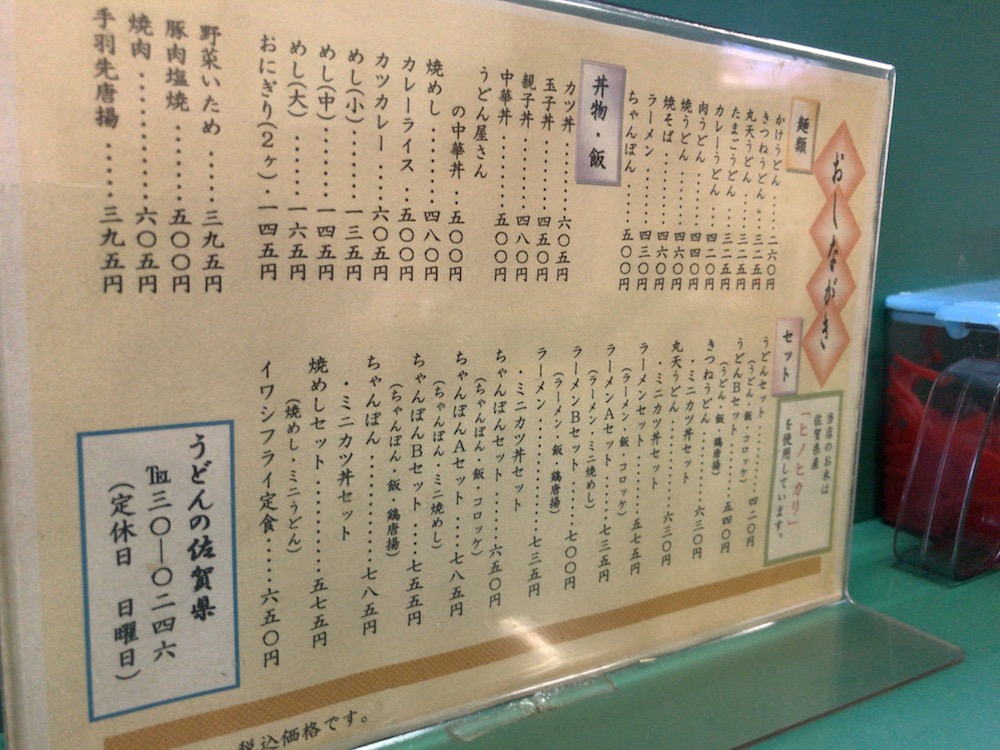 おしながき
麺類
かけうどん‥‥二六〇円
きつねうどん‥三二五円
丸天うどん‥‥三二五円
たまごうどん‥三二五円
カレーうどん‥四二〇円
肉うどん‥‥‥四四〇円
焼うどん‥‥‥四六〇円
焼そば‥‥‥‥四六〇円
ラーメン‥‥‥四三〇円
ちゃんぽん‥‥五〇〇円
丼物・飯
カツ丼‥‥‥‥六〇五円
玉子丼‥‥‥‥四五〇円
親子丼‥‥‥‥四八〇円
中華丼‥‥‥‥五〇〇円
うどん屋さん
の中華丼‥五〇〇円
焼めし‥‥‥‥四八〇円
カレーライス‥五〇〇円
カツカレー‥‥六〇五円
めし(小)‥‥‥一三五円
めし(中)‥‥‥一四五円
めし(大)‥‥‥一六五円
おにぎり(2ヶ)・一四五円
野菜いため‥‥三九五円
豚肉塩焼‥‥‥五〇〇円
焼肉‥‥‥‥‥六〇五円
手羽先唐揚‥‥三九五円
セット
うどんセット‥‥‥‥四二〇円
(うどん・飯・コロッケ)
うどんBセット‥‥‥五四〇円
(うどん・飯・鶏唐揚)
きつねうどん
・ミニカツ丼セット‥‥六三〇円
丸天うどん
・ミニカツ丼セット‥‥六三〇円
ラーメンセット‥‥‥五七五円
(ラーメン・飯・コロッケ)
ラーメンAセット‥‥七三五円
(ラーメン・ミニ焼めし)
ラーメンBセット‥‥七〇〇円
(ラーメン・飯・鶏唐揚)
ラーメン‥‥‥‥‥‥七三五円
・ミニカツ丼セット
ちゃんぽんセット‥‥六五〇円
(ちゃんぽん・飯・コロッケ)
ちゃんぽんAセット‥七八五円
(ちゃんぽん・ミニ焼めし)
ちゃんぽんBセット‥七五五円
(ちゃんぽん・飯・鶏唐揚)
ちゃんぽん‥‥‥‥‥七八五円
・ミニカツ丼セット
焼めしセット‥‥‥‥五七五円
(焼めし・ミニうどん)
イワシフライ定食‥‥六五〇円
当店のお米は
佐賀県産
「ヒノヒカリ」
を使用しています。
うどんの佐賀県
℡三〇―〇二四六
(定休日 日曜日)
税込価格です。